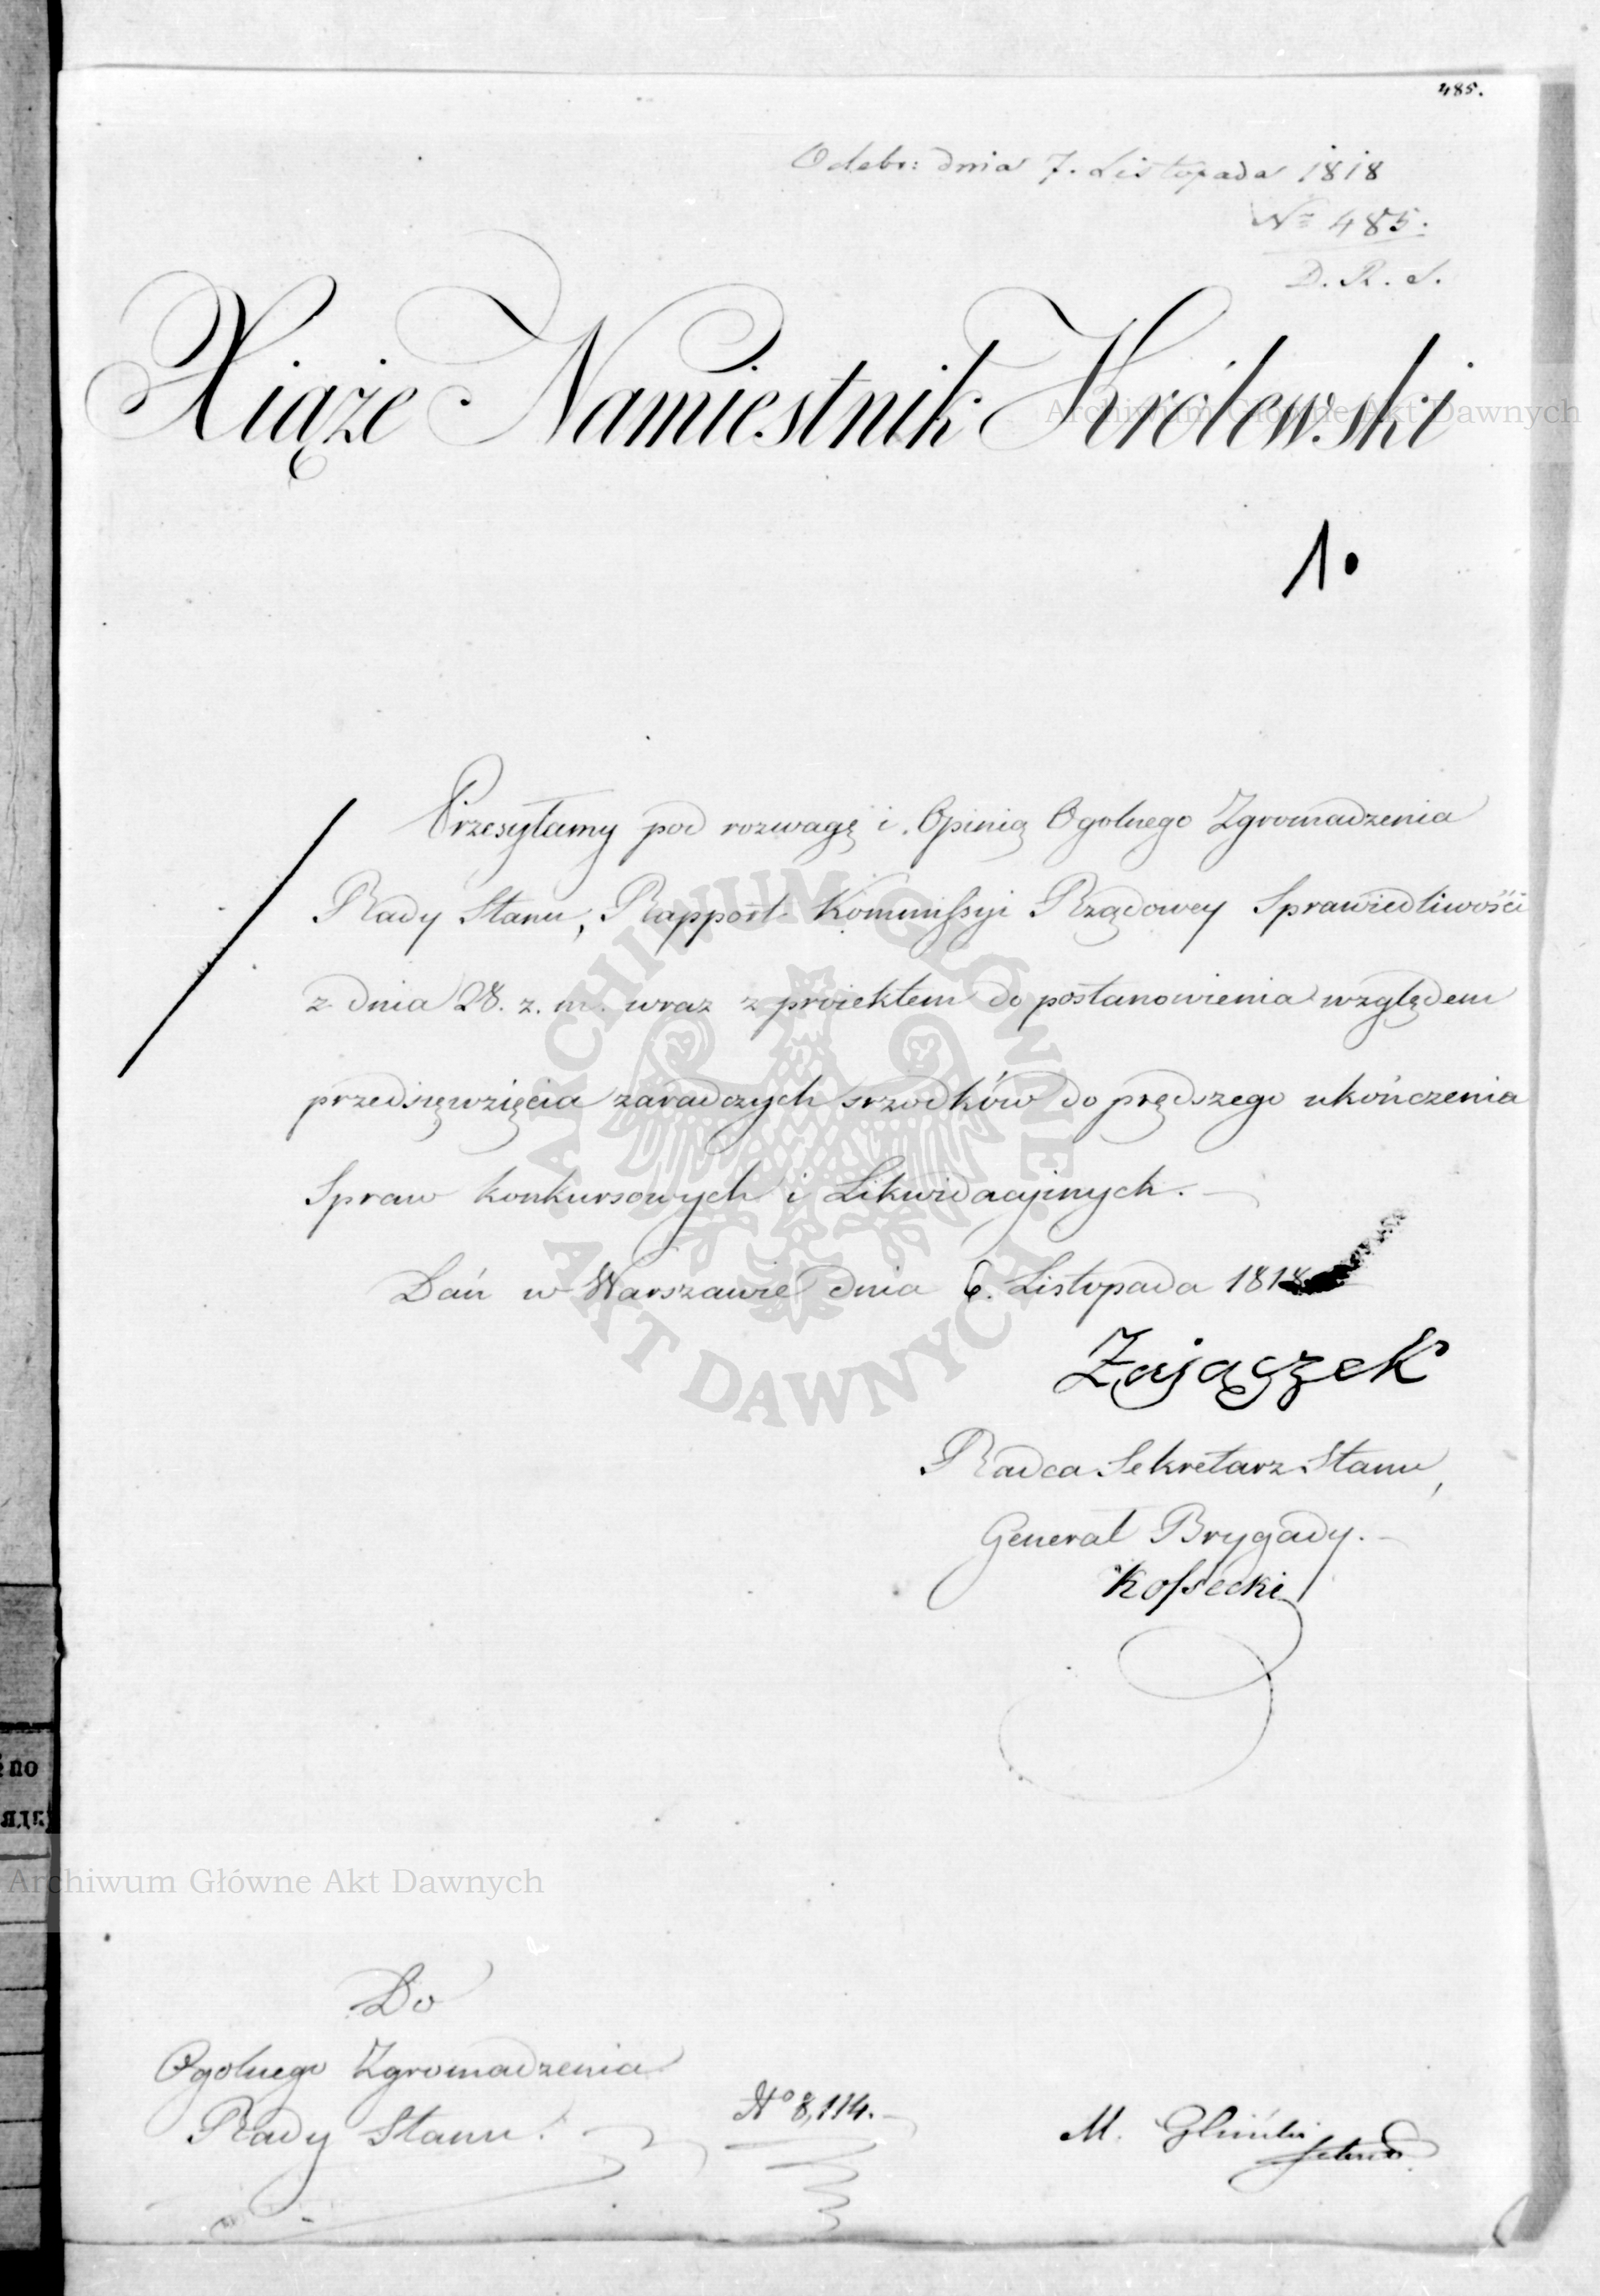 485.
Odebr: dnia 7. Listopada 1818
No 485.
D. R. S.
Xiąże Namiestnik Królewski
1.
Przesyłamy pod rozwagę i Opinią Ogolnego Zgromadzenia
Rady Stanu, Rapport Kommissyi Rządowey Sprawiedliwości
z dnia 28. z. m. wraz z proiektem do postanowienia względem
przedsięwzięcia zaradczych srzodków do prędszego ukończenia
Spraw konkursowych i Likwidacyinych.
Dań w Warszawie dnia 6. Listopada 1818
Zajączek
Radca Sekretarz Stanu,
Generał Brygady.
Kossecki
Do
Ogolnego Zgromadzenia
Rady Stanu.
No 8,114.
M. Gliński
Archiwum Główne Akt Dawnych
ARCHIWUM GŁÓWNE AKT DAWNYCH
Archiwum Główne Akt Dawnych